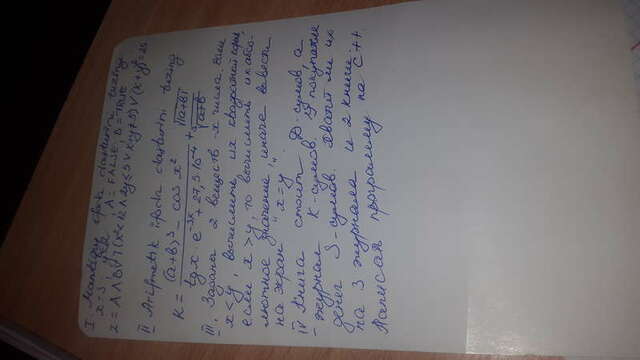 I. Mantiqiy ifoda dasturini tuzing
x=3, y=2, A = FALSE, B = TRUE
z = A ∧ B ∨ ¬(x²<12 ∧ 2y≤5 ∨ x+y≠5) ∨ (x+y)²=25
II Arifmetik ifoda dasturini tuzing
K = ((a+b)³ - cos x²) / (tg x · e^(-3x) + 27,5·10^(-4)) + √|a+b| / √(a+b)
III. Заданы 2 веществ-х числа. Если
x<y, вычислить их квадратный корень,
если x>y, то вычислить их абсо-
лютное значение, иначе вывести
на экран "x=y".
IV Книга стоит D-сумов, а
журнал K-сумов. У покупателя
денег S-сумов. Хватит ли их
на 3 журнала и 2 книги.
Написать программу на C++